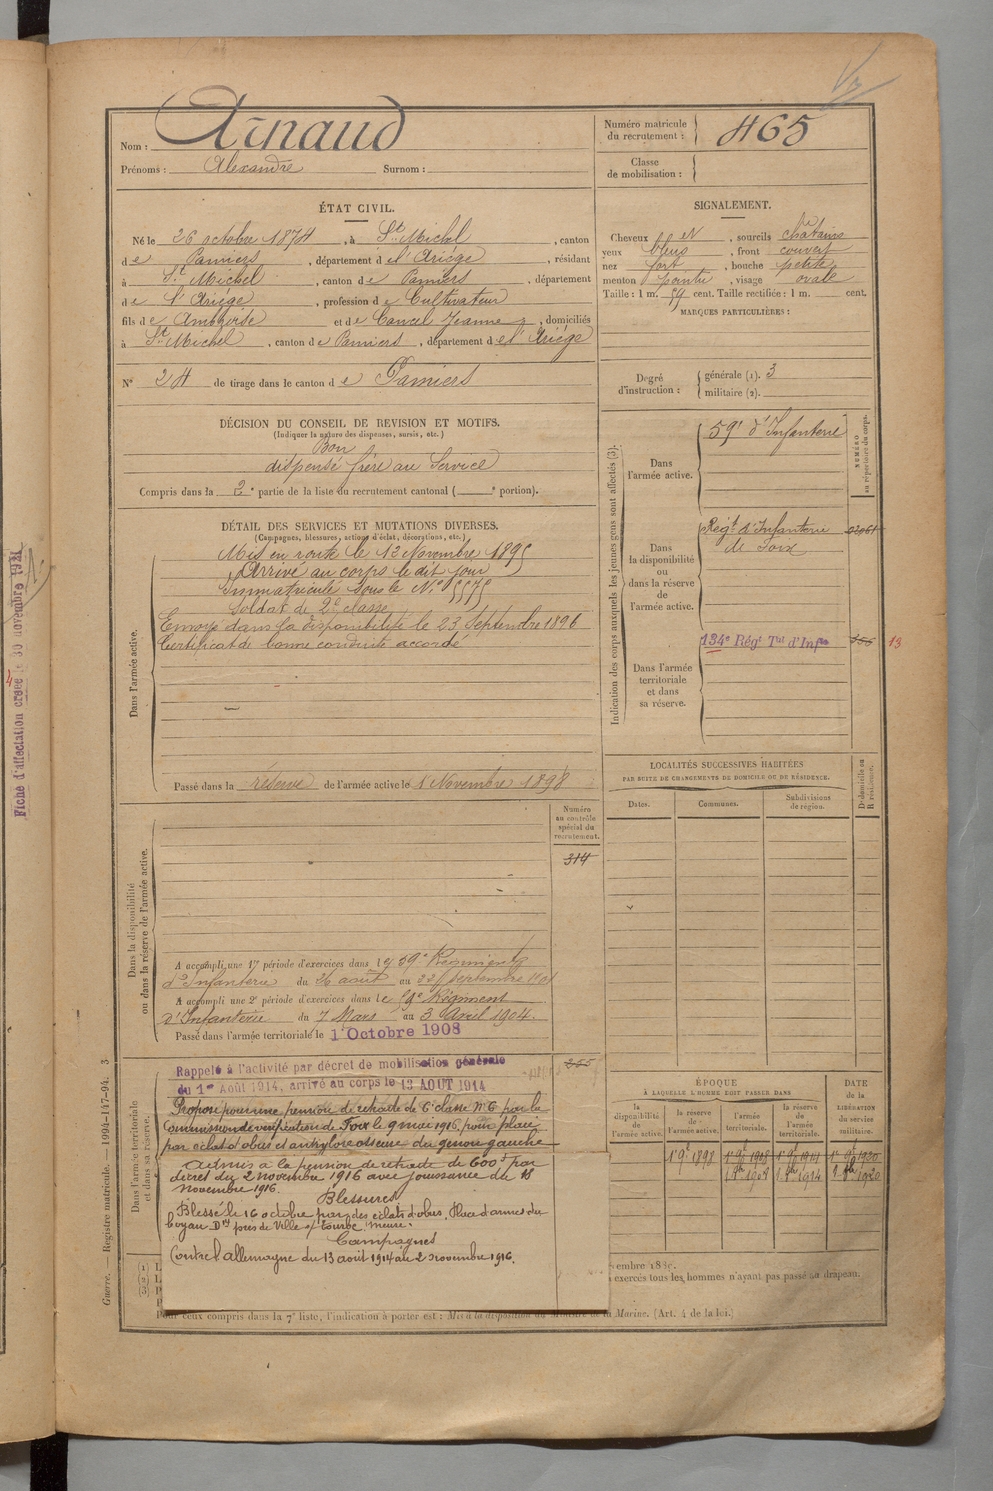 Nom : Arnaud
Prénoms : Alexandre Surnom :
Numéro matricule du recrutement : 465
Classe de mobilisation :
ÉTAT CIVIL.
Né le 26 octobre 1874, à St Michel, canton
de Pamiers, département de l'Ariége, résidant
à St Michel, canton de Pamiers, département
de l'Ariége, profession de Cultivateur
fils de Ambroise et de Cancel Jeanne, domiciliés
à St Michel, canton de Pamiers, département de l'Ariége
N° 24 de tirage dans le canton de Pamiers
SIGNALEMENT.
Cheveux et, sourcils chatains
yeux bleus, front couvert
nez fort, bouche petite
menton pointu, visage ovale
Taille : 1 m. 59 cent. Taille rectifiée : 1 m. cent.
MARQUES PARTICULIÈRES :
Degré d'instruction : générale (1). 3
militaire (2).
DÉCISION DU CONSEIL DE REVISION ET MOTIFS.
(Indiquer la nature des dispenses, sursis, etc.)
Bon
dispensé frère au Service
Compris dans la 2e partie de la liste du recrutement cantonal ( e portion).
DÉTAIL DES SERVICES ET MUTATIONS DIVERSES.
(Campagnes, blessures, actions d'éclat, décorations, etc.)
Dans l'armée active.
Mis en route le 12 Novembre 1895
Arrivé au corps le dit jour
Immatriculé sous le N° 5575
Soldat de 2e classe
Envoyé dans la disponibilité le 23 Septembre 1896
Certificat de bonne conduite accordé
Passé dans la réserve de l'armée active le 1 Novembre 1898
Indication des corps auxquels les jeunes gens sont affectés (3).
NUMÉRO au répertoire du corps.
Dans l'armée active.
59e d'Infanterie
Dans la disponibilité ou dans la réserve de l'armée active.
Regt d'Infanterie
de Foix
Dans l'armée territoriale et dans sa réserve.
134e Régt Tal d'Infie
13
LOCALITÉS SUCCESSIVES HABITÉES
PAR SUITE DE CHANGEMENTS DE DOMICILE OU DE RÉSIDENCE.
Dates. Communes. Subdivisions de région. D domicile ou R résidence.
Dans la disponibilité ou dans la réserve de l'armée active.
Numéro au contrôle spécial du recrutement.
314
A accompli une 1re période d'exercices dans le 59e Régiment
d'Infanterie du 26 août au septembre 1901
A accompli une 2e période d'exercices dans le Régiment
d'Infanterie du 7 Mars au 3 Avril 1904.
Passé dans l'armée territoriale le 1 Octobre 1908
Dans l'armée territoriale et dans sa réserve.
Rappelé à l'activité par décret de mobilisation générale
du 1er Août 1914, arrivé au corps le 13 AOUT 1914
Proposé pour une pension de retraite de 6e classe par la
Commission de vérification de Foix le 9 mai 1916, pour plaie
par éclat d'obus et ankylose osseuse du genou gauche
Admis à la pension de retraite de 600f par
décret du 2 novembre 1916 avec jouissance du 18
novembre 1916.
Blessures
Blessé le 16 octobre par des éclats d'obus. Place d'armes du
boyau près de Ville s/ tourbe, Meuse.
Campagnes
Contre l'allemagne du 13 août 1914 au 2 novembre 1916.
ÉPOQUE
À LAQUELLE L'HOMME DOIT PASSER DANS
la disponibilité de l'armée active. la réserve de l'armée active. l'armée territoriale. la réserve de l'armée territoriale.
DATE de la LIBÉRATION du service militaire.
exercés tous les hommes n'ayant pas passé au drapeau.
Pour ceux compris dans la 7e liste, l'indication à porter est : Mis à la disposition du Ministre de la Marine. (Art. 4 de la loi.)
Guerre. — Registre matricule. — 1994-147-94. 3
Fiche d'affectation créée le 30 novembre 1921